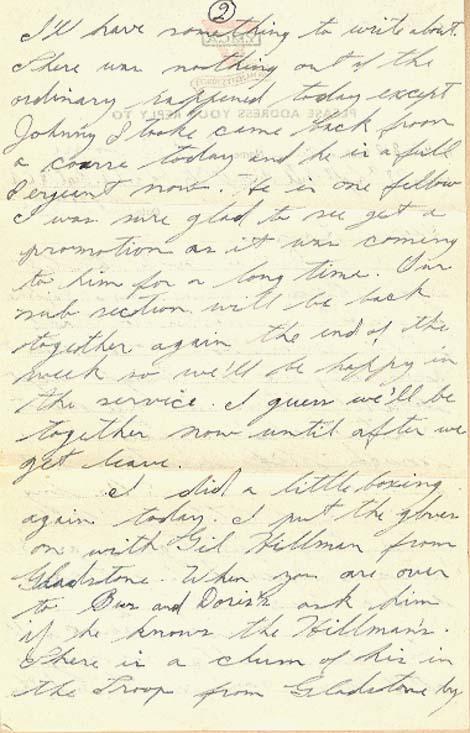 2
I'll have something to write about.
There was nothing out of the
ordinary happened today except
Johnny came back from
a course today and he is a full
Sergeant now. He is one fellow
I was sure glad to see get a
promotion as it was coming
to him for a long time. Our
sub section will be back
together again the end of the
week so we'll be happy in
the service. I guess we'll be
together now until after we
get leave.
I did a little boxing
again today. I put the gloves
on with Gil Hillman from
Gladstone. When you are over
to and Doris's ask him
if he knows the Hillman's.
There is a chum of his in
the Troop from Gladstone by